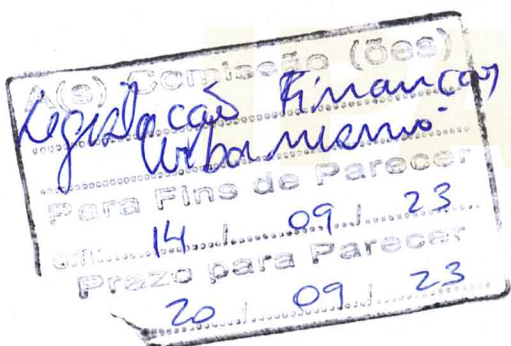 A(s) Comissão (ões)
Legislação Finanças
Urbanismo
Para Fins de Parecer
Em 14 / 09 / 23
Prazo para Parecer
20 / 09 / 23